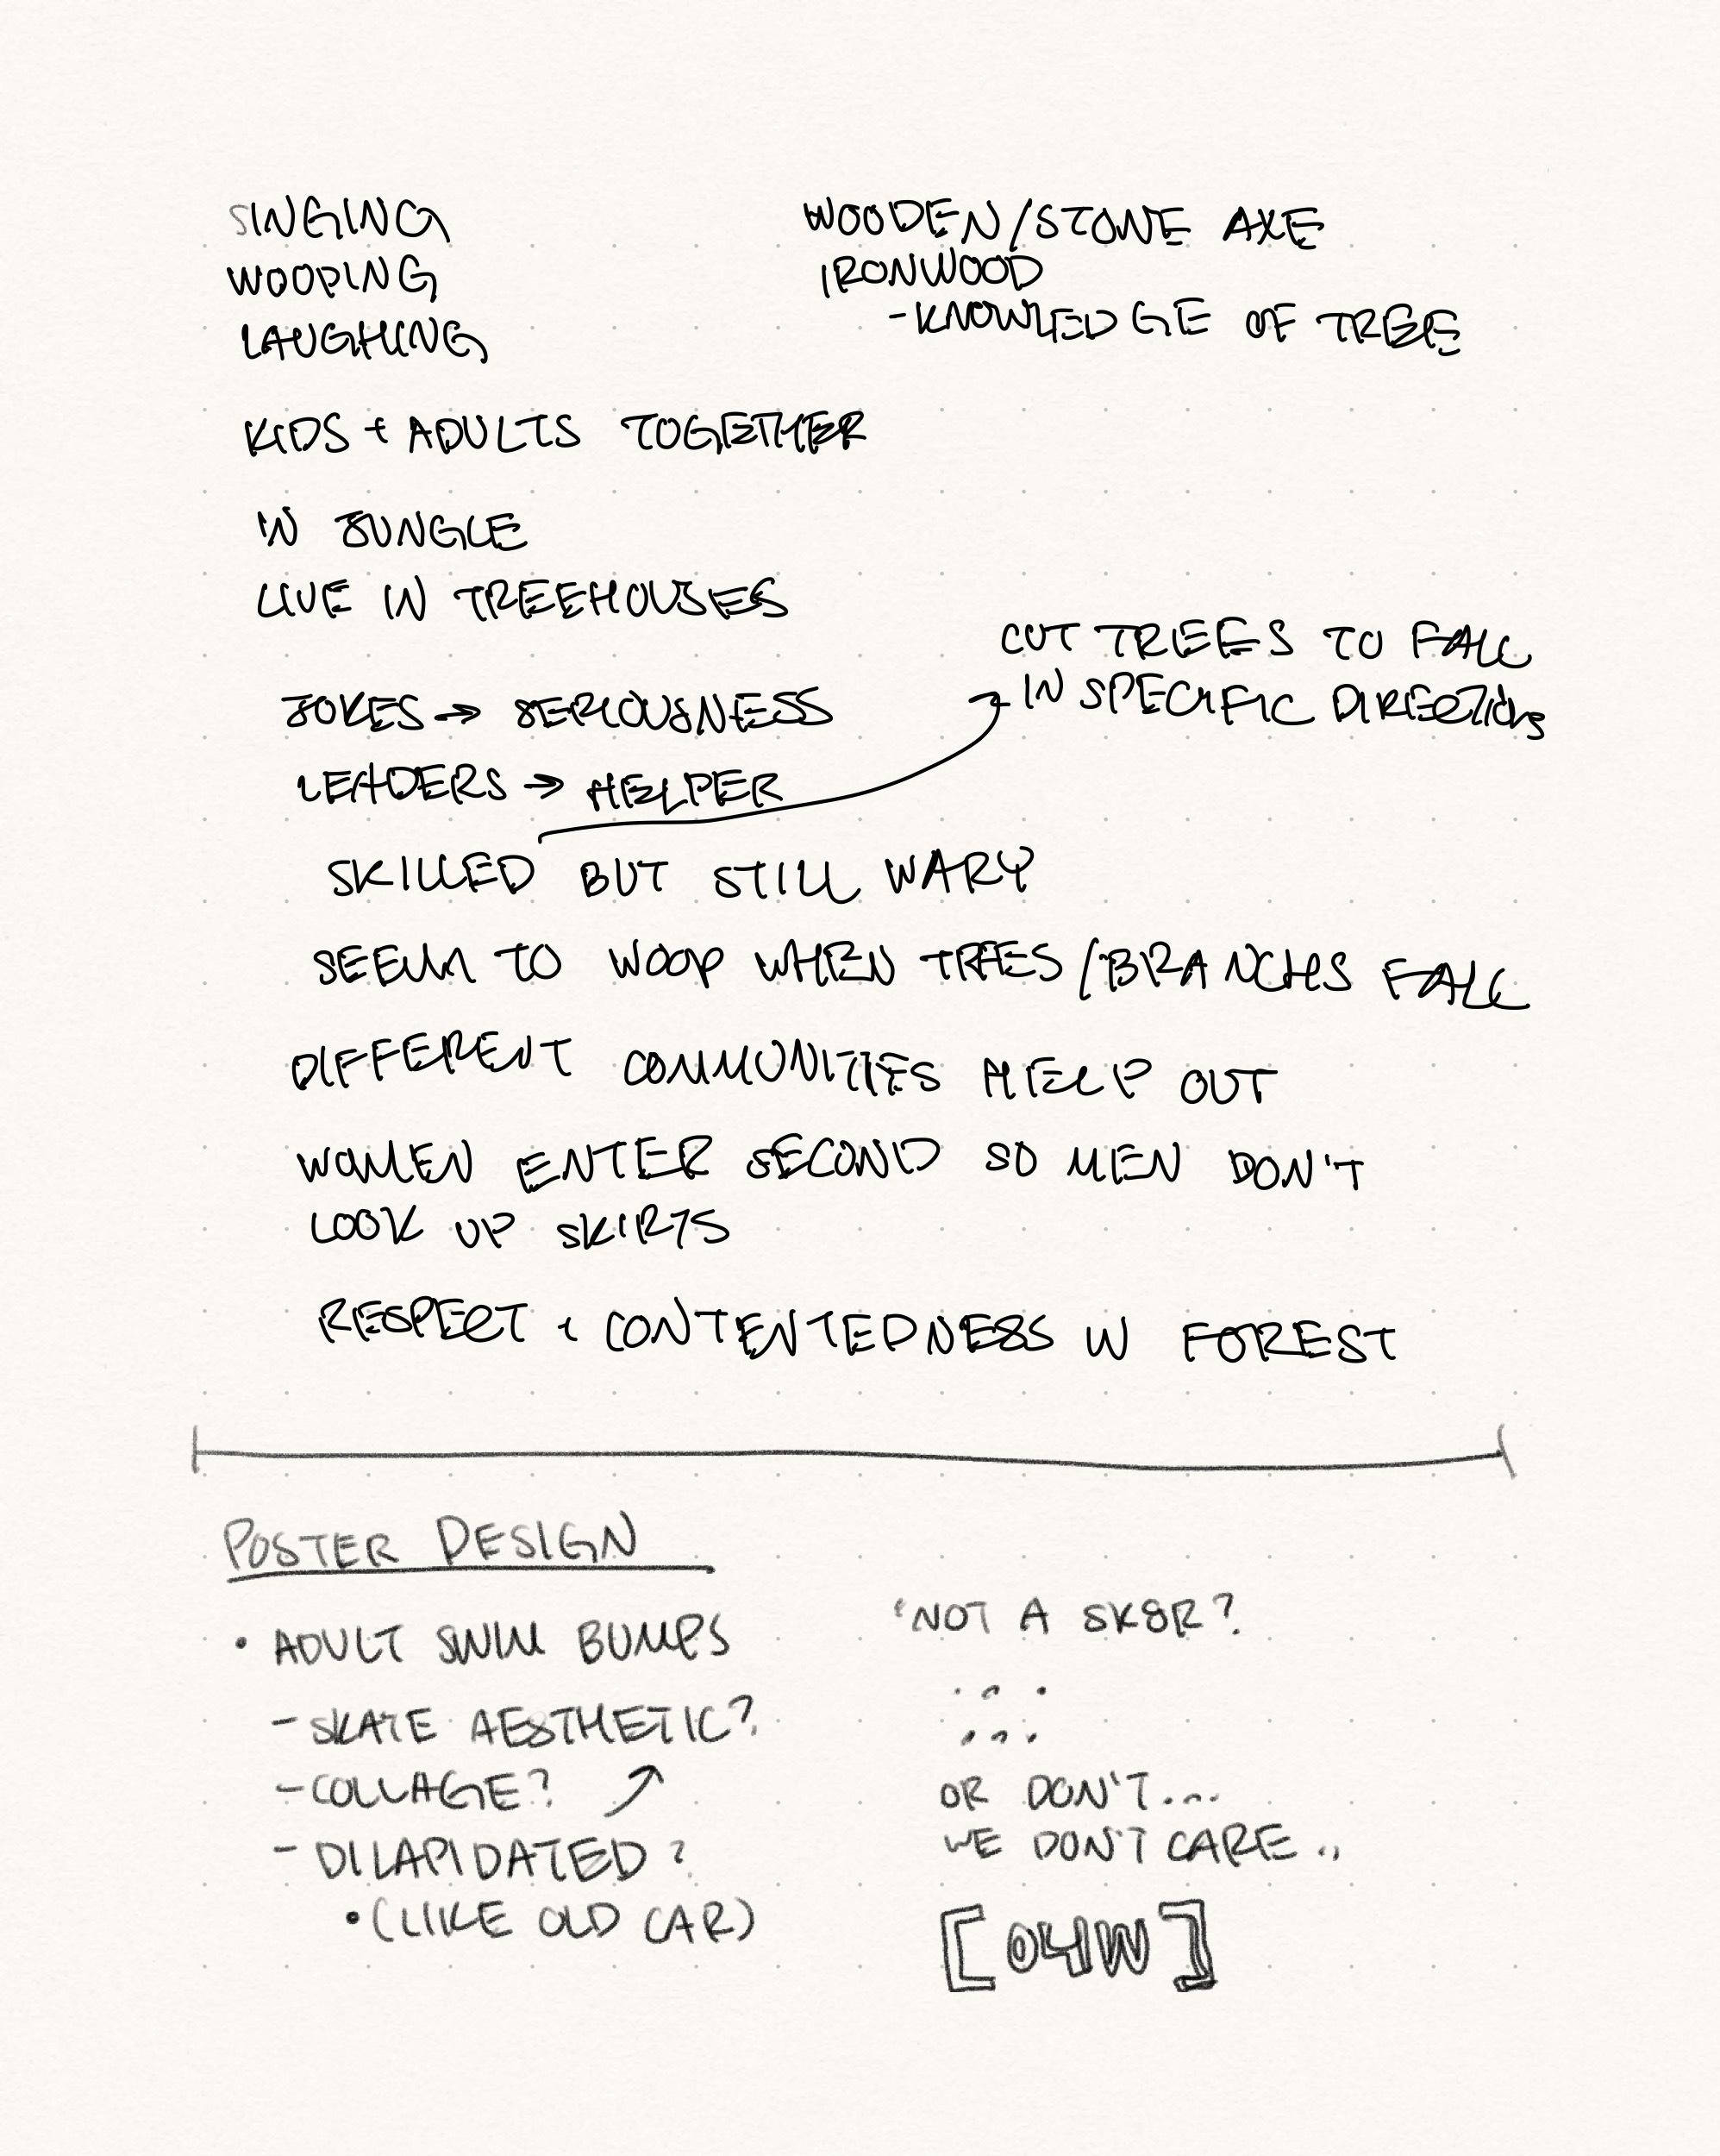 SINGING
WOOPING
LAUGHING
WOODEN/STONE AXE
IRONWOOD
-KNOWLEDGE OF TREE
KIDS + ADULTS TOGETHER
IN JUNGLE
LIVE IN TREEHOUSES
JOKES → SERIOUSNESS
LEADERS → HELPER
CUT TREES TO FALL
IN SPECIFIC DIRECTIONS
SKILLED BUT STILL WARY
SEEM TO WOOP WHEN TREES/BRANCHS FALL
DIFFERENT COMMUNITIES HELP OUT
WOMEN ENTER SECOND SO MEN DON'T
LOOK UP SKIRTS
RESPECT + CONTENTEDNESS W FOREST
POSTER DESIGN
• ADULT SWIM BUMPS
- SKATE AESTHETIC?
- COLLAGE?
- DILAPIDATED?
• (LIKE OLD CAR)
'NOT A SK8R?
. . .
. . .
OR DON'T...
WE DON'T CARE..
[04W]